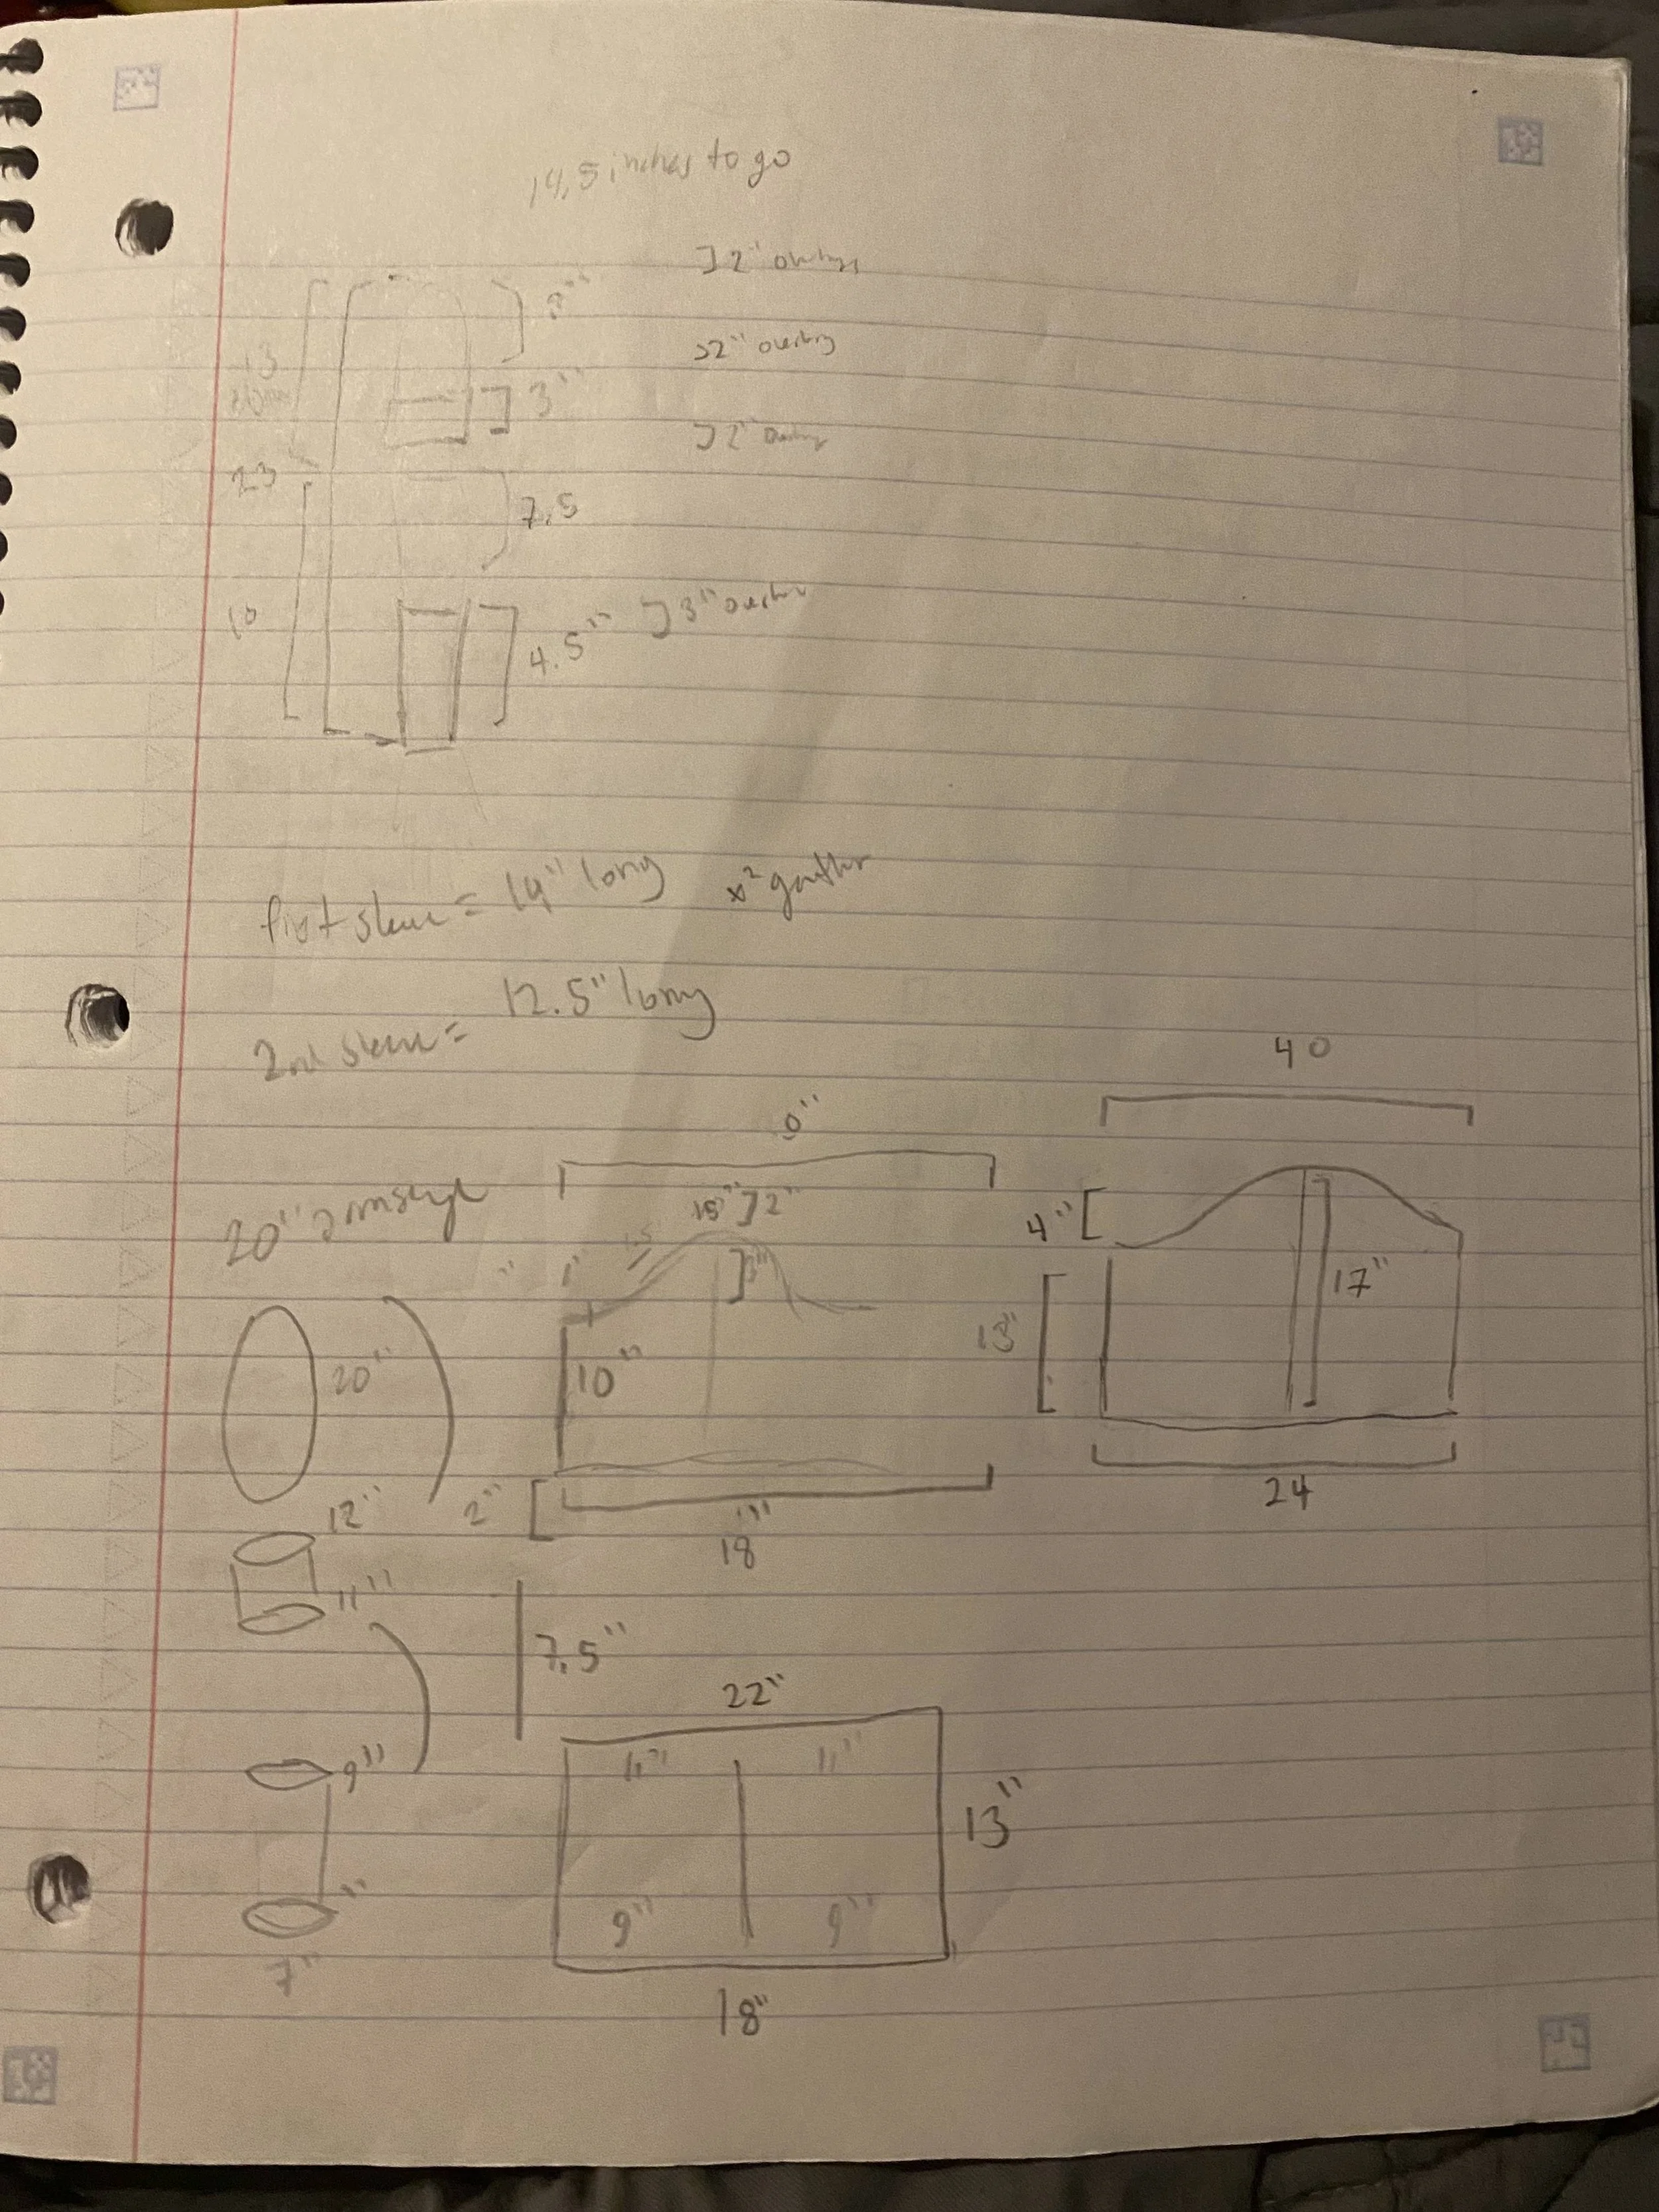 14.5 inches to go
]2"
]2" overlay
]3"
]2"
23
7.5
10
4.5" ]3"
first sleeve = 14" long x2 gather
2nd sleeve = 12.5" long
40
0"
20"
15" ]2"
4"
1"
3"
17"
13"
20"
10"
12"
2"
18"
24
11"
7.5"
22"
9"
11" 11"
13"
9" 9"
7"
18"